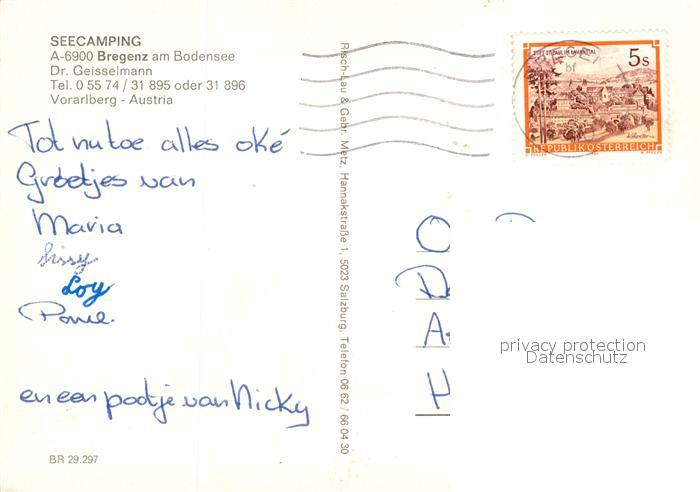 SEECAMPING
A-6900 Bregenz am Bodensee
Dr. Geisselmann
Tel. 0 55 74 / 31 895 oder 31 896
Vorarlberg - Austria
Tot nu toe alles oké
Groetjes van
Maria
Sissy
Loy
en een pootje van Nicky
BR 29.297
Risch-Lau & Gebr. Metz, Hannakstraße 1, 5023 Salzburg, Telefon 06 62 / 66 04 30
5s
REPUBLIK ÖSTERREICH
O
D
A
H
privacy protection
Datenschutz